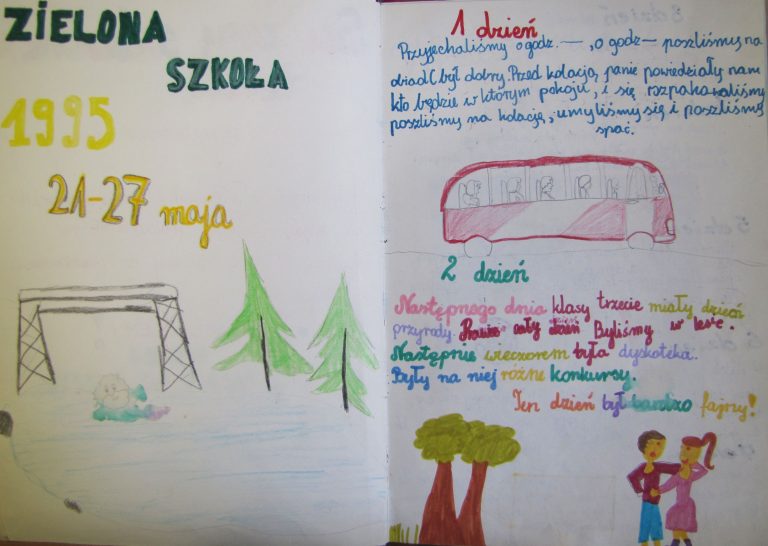 ZIELONA
SZKOŁA
1995
21-27 maja
1 dzień
Przyjechaliśmy o godz. —, o godz — poszliśmy na
obiad (był dobry. Przed kolacją, panie powiedziały nam
kto będzie w którym pokoju, i się rozpakowaliśmy
poszliśmy na kolację, umyliśmy się i poszliśmy
spać.
2 dzień
Następnego dnia klasy trzecie miały dzień
przyrody. Prawie cały dzień Byliśmy w lesie.
Następnie wieczorem była dyskoteka.
Były na niej różne konkursy.
Ten dzień był bardzo fajny!